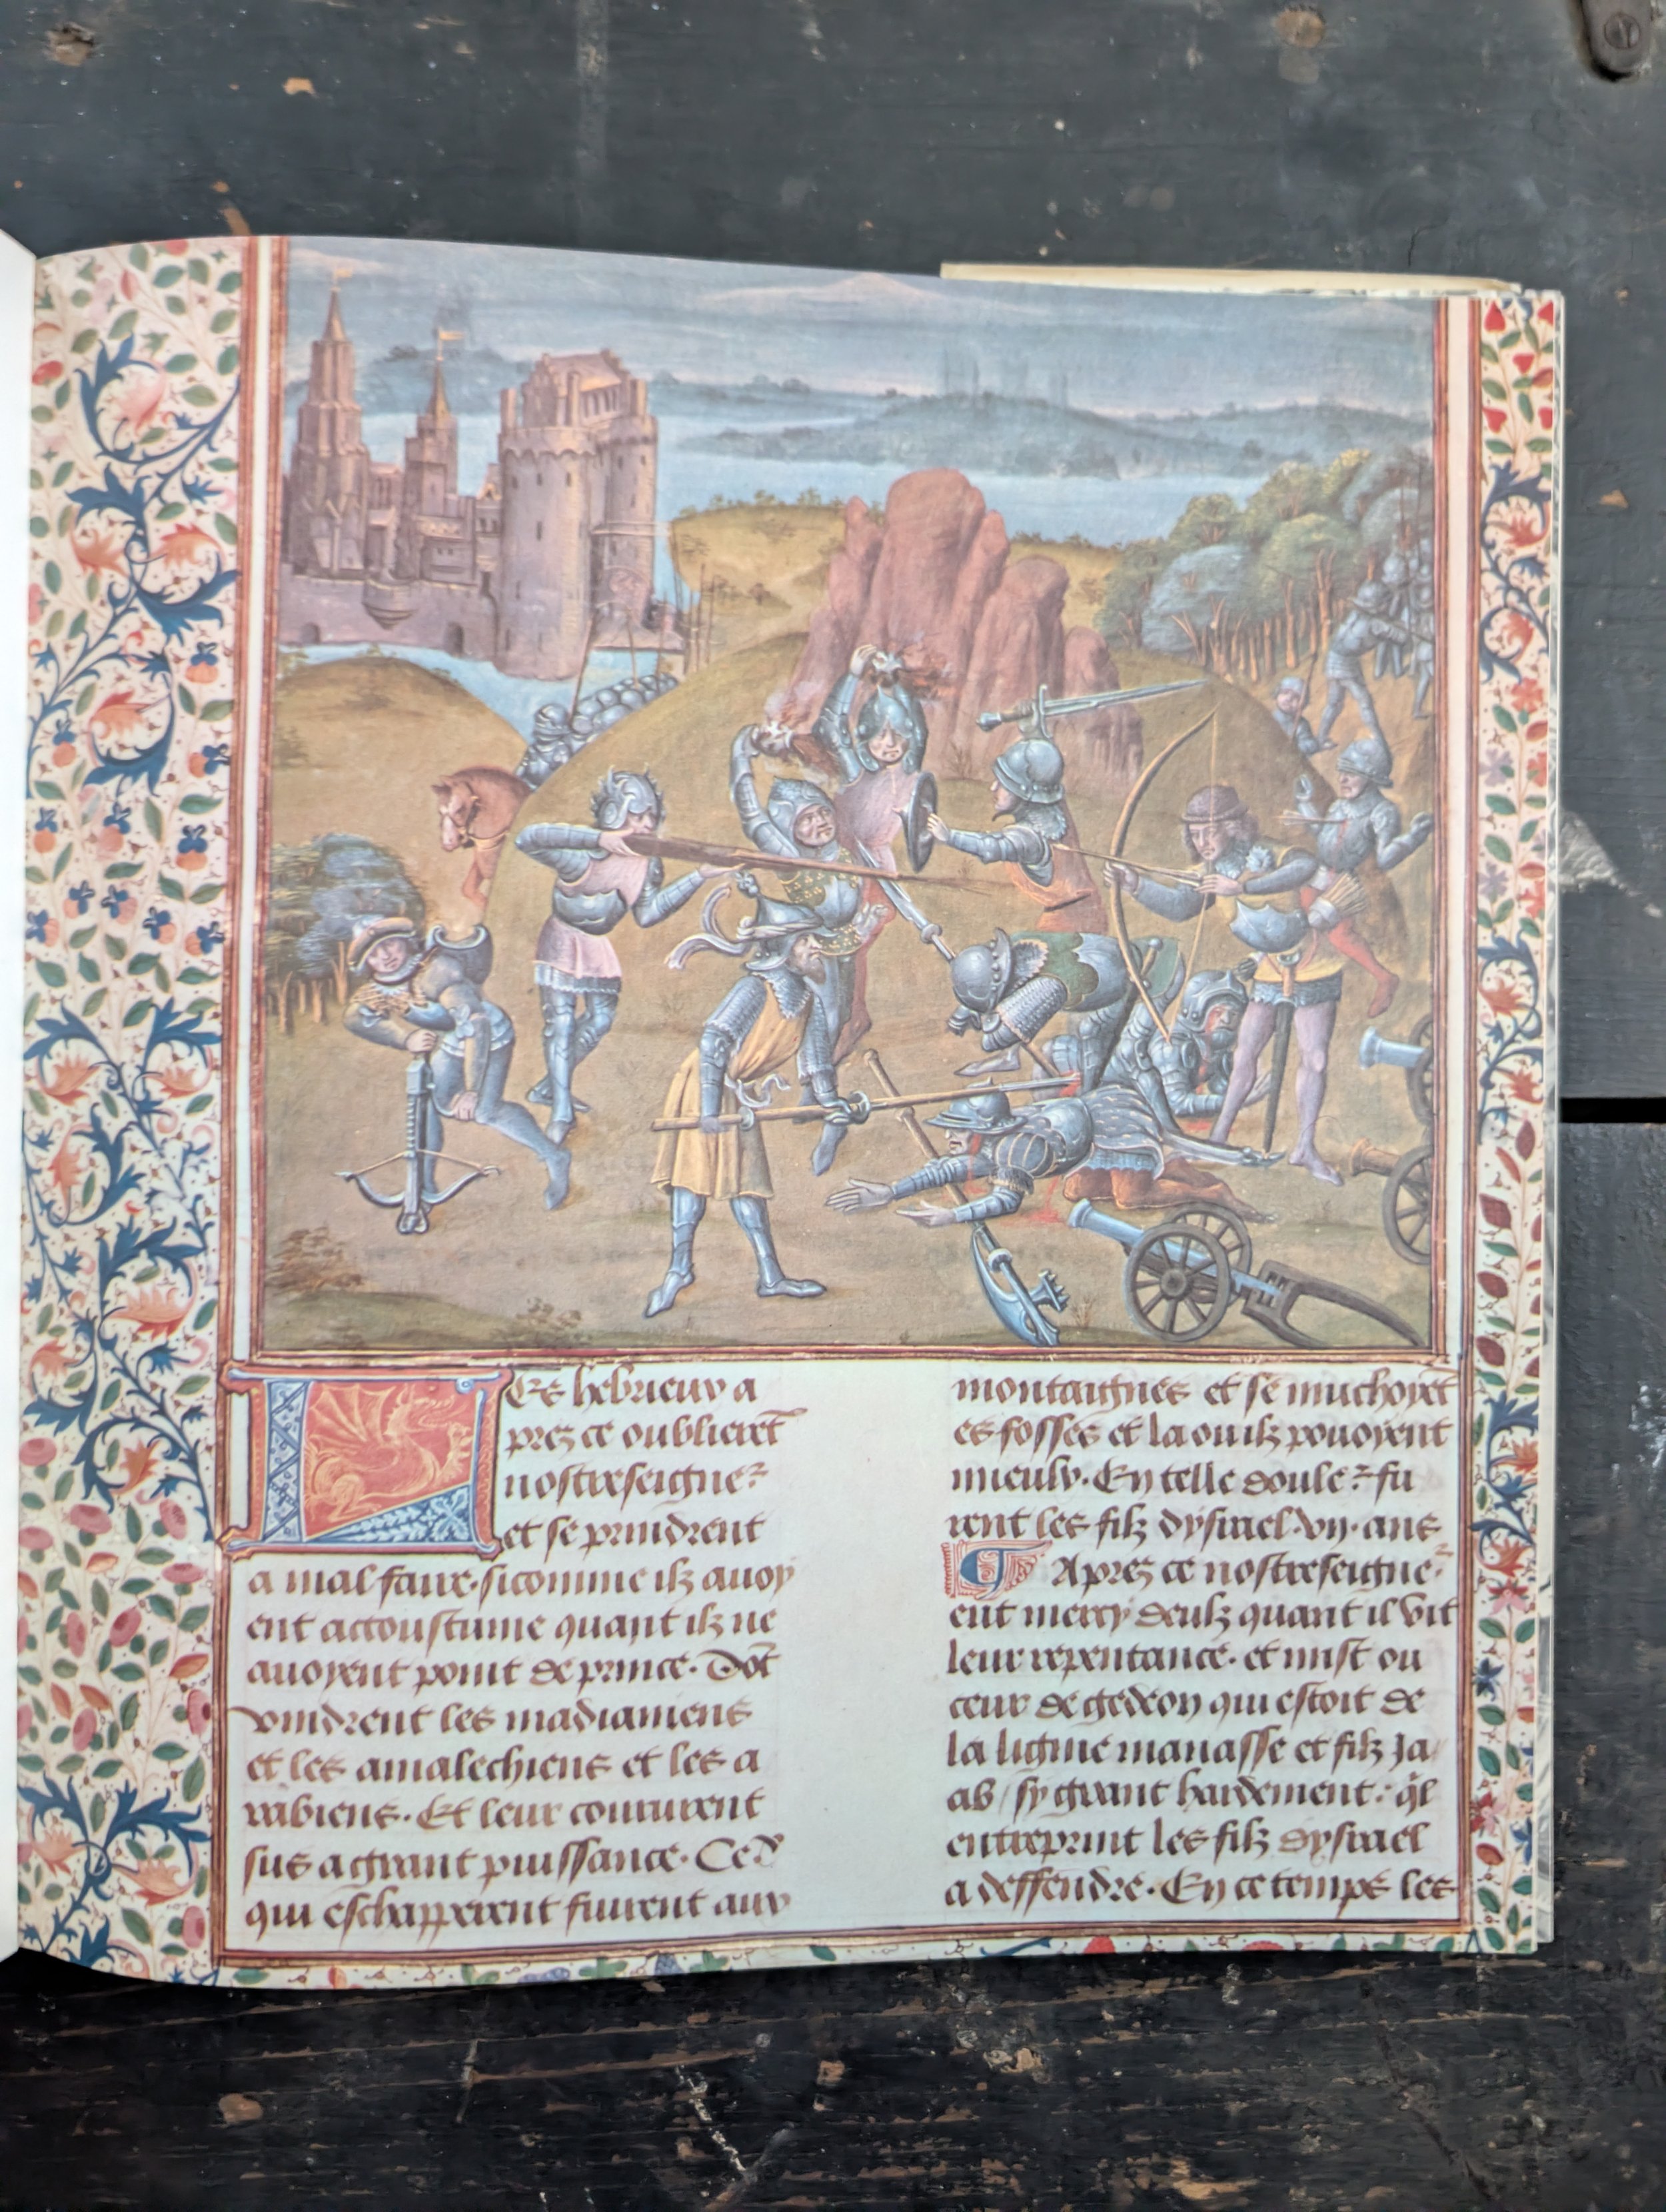 Les hebrieux a
prez ce oublierēt
nostreseigneᷣ
et se prindrent
a mal faire. sicomme ilz avoy
ent accoustume quant ilz ne
avoyent point de prince. Dōt
vindrent les madianiens
et les amalechiens et les a
rabiens. Et leur coururent
sus a grant puissance. Ceᷣ
qui eschapperent fuirent aux
montaignes et se muchoyēt
es fosses et la ou ilz povoyent
mieulx. En telle douleᷣ fu
rent les filz dysrael .vii. ans
C Aprez ce nostreseigneᷣ
eut mercy deulz quant il vit
leur repentance. et mist ou
ceur de gedeon qui estoit de
la ligniē manasse et filz Ja
ab / sy grant hardement: q̄l
entreprint les filz dysrael
a deffendre. En ce temps les